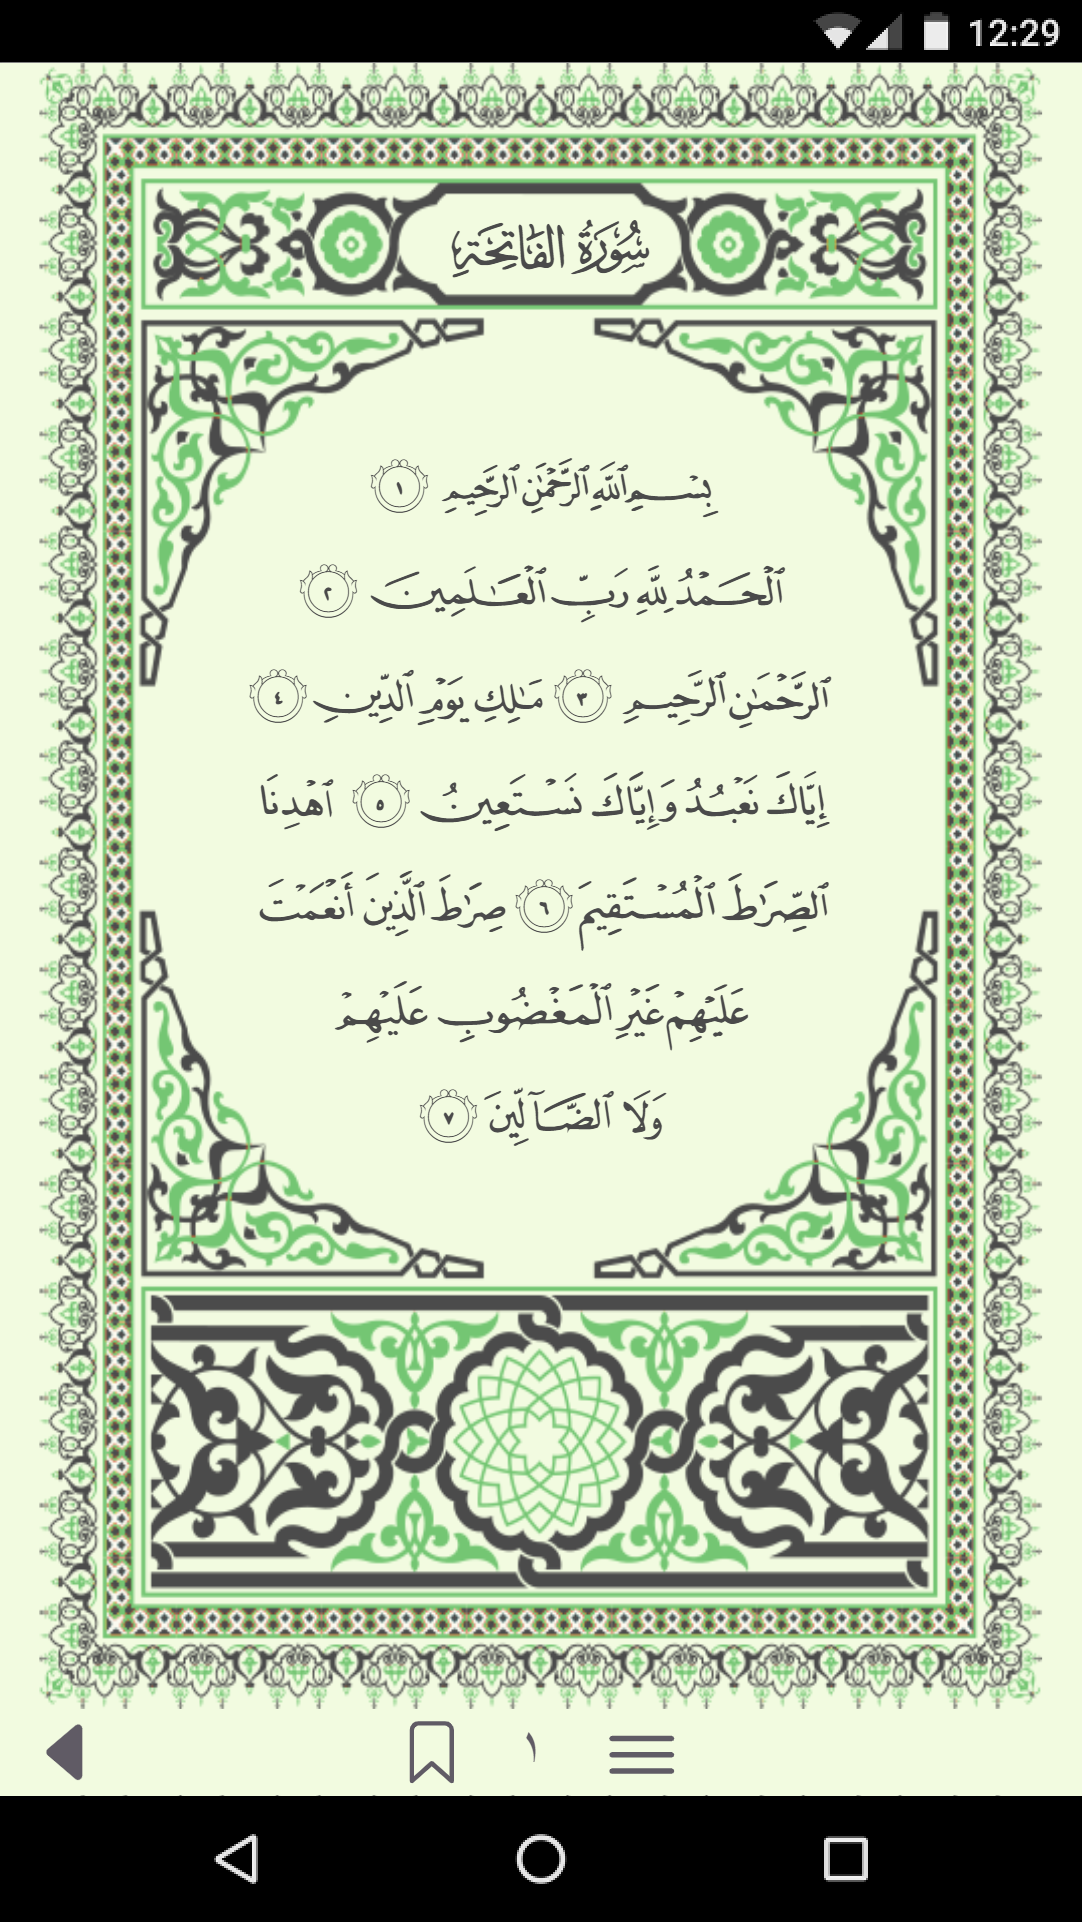 12:29
سُورَةُ الفَاتِحَةِ
بِسْمِ ٱللَّهِ ٱلرَّحْمَٰنِ ٱلرَّحِيمِ ١
ٱلْحَمْدُ لِلَّهِ رَبِّ ٱلْعَٰلَمِينَ ٢
ٱلرَّحْمَٰنِ ٱلرَّحِيمِ ٣ مَٰلِكِ يَوْمِ ٱلدِّينِ ٤
إِيَّاكَ نَعْبُدُ وَإِيَّاكَ نَسْتَعِينُ ٥ ٱهْدِنَا
ٱلصِّرَٰطَ ٱلْمُسْتَقِيمَ ٦ صِرَٰطَ ٱلَّذِينَ أَنْعَمْتَ
عَلَيْهِمْ غَيْرِ ٱلْمَغْضُوبِ عَلَيْهِمْ
وَلَا ٱلضَّآلِّينَ ٧
١